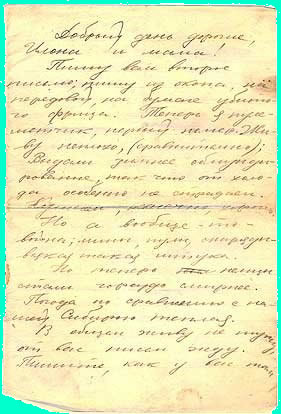 Добрый день дорогие,
Илона и мама!
Пишу вам второе
письмо; пишу из окопа, на
передовой, на бумаге убито-
го фрица. Теперь я пуле-
метчик, первый номер. Жи-
ву неплохо, (сравнительно);
Выдали зимнее обмунди-
рование, так что от холо-
да особенно не страдаем.
Но а вообще-то
война; мины, пули, снаряды
штука.
Но теперь немцы
стали гораздо смирнее.
Погода по сравнению с на-
шей Сибирью теплая.
В общем живу не тужу,
от вас писем жду.
Пишите, как у вас там,